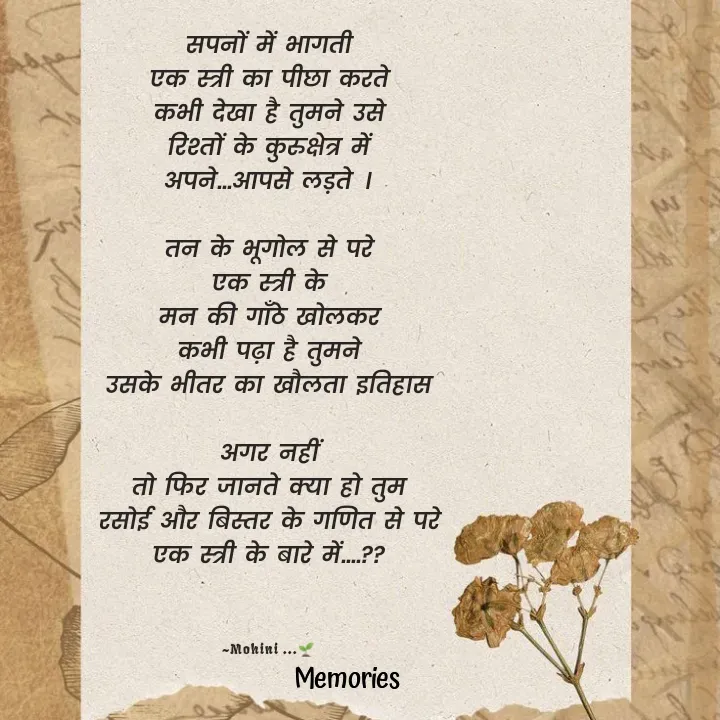 सपनों में भागती
एक स्त्री का पीछा करते
कभी देखा है तुमने उसे
रिश्तों के कुरुक्षेत्र में
अपने...आपसे लड़ते ।
तन के भूगोल से परे
एक स्त्री के
मन की गाँठे खोलकर
कभी पढ़ा है तुमने
उसके भीतर का खौलता इतिहास
अगर नहीं
तो फिर जानते क्या हो तुम
रसोई और बिस्तर के गणित से परे
एक स्त्री के बारे में....??
~Mohini ...🌱
Memories